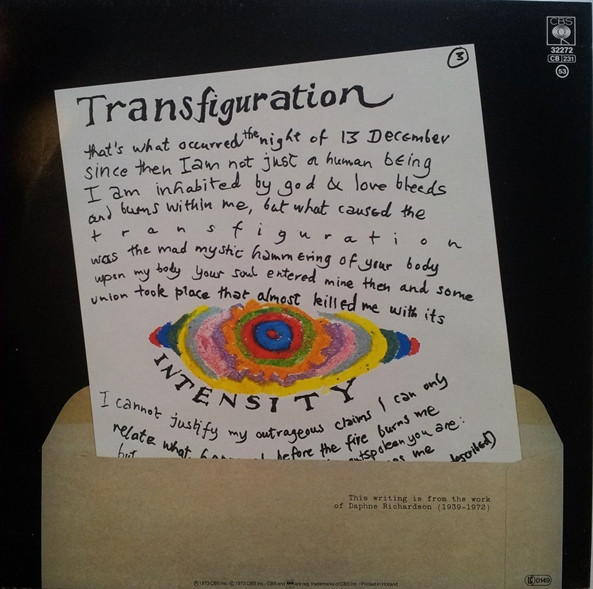 CBS
32272
CB 231
53
3
Transfiguration
that's what occurred the night of 13 December
since then I am not just a human being
I am inhabited by god & love bleeds
and burns within me, but what caused the
transfiguration
was the mad mystic hammering of your body
upon my body your soul entered mine then and some
union took place that almost killed me with its
INTENSITY
I cannot justify my outrageous claims I can only
relate what before the fire burns me
but outspoken you are:
me described)
This writing is from the work
of Daphne Richardson (1939-1972)
℗ 1973 CBS Inc. © 1973 CBS Inc. / CBS and are reg. trademarks of CBS Inc. / Printed in Holland
0149